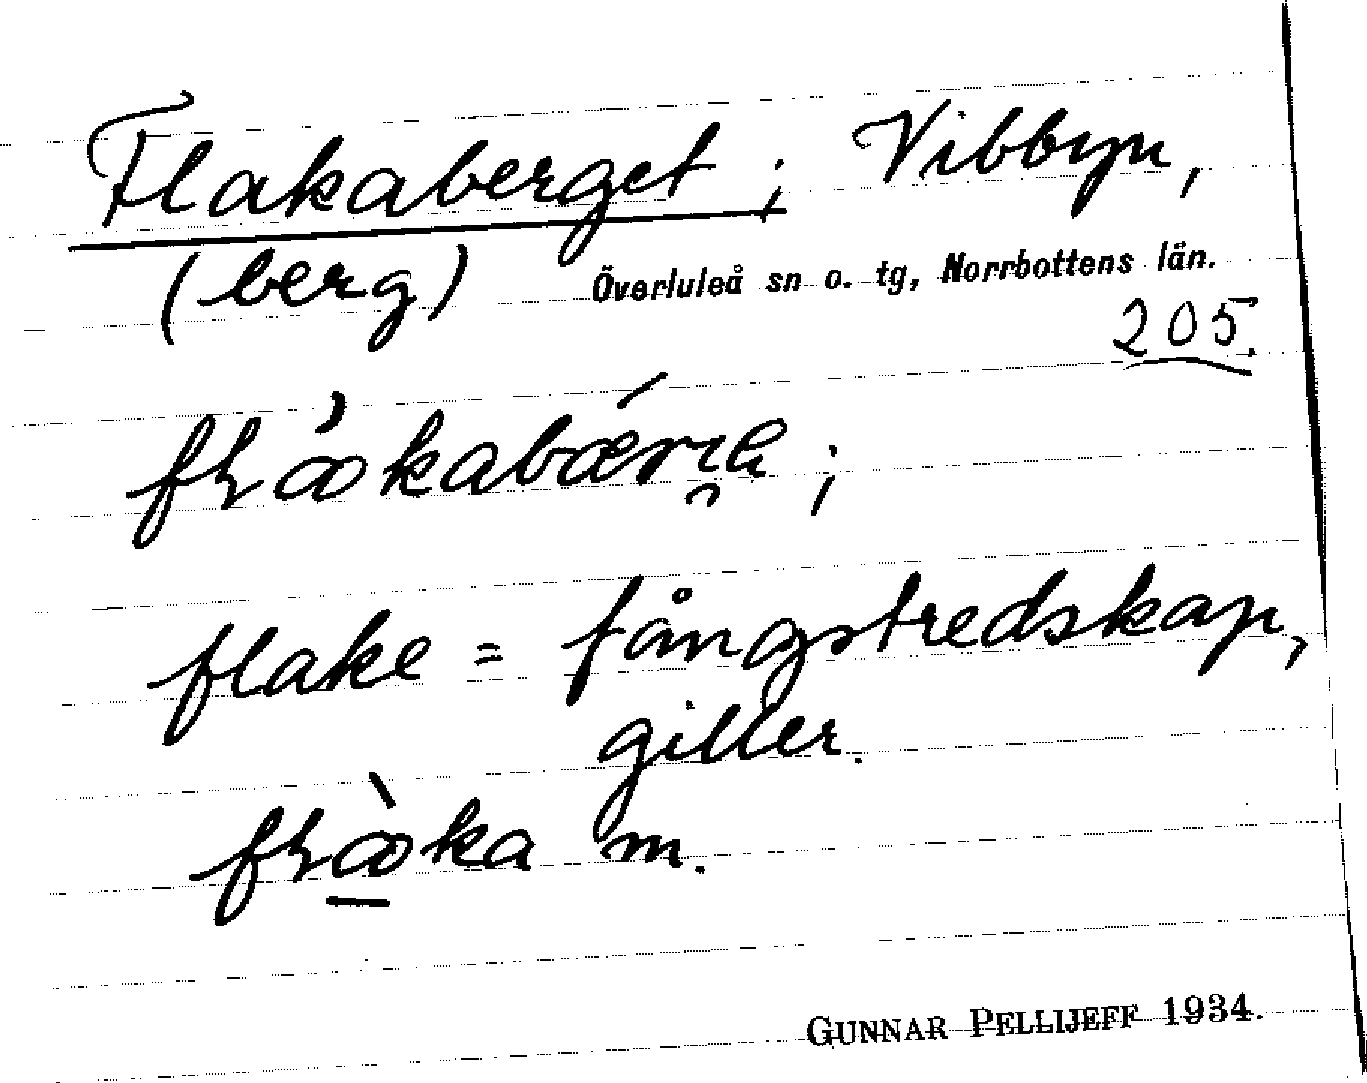 Flakaberget; Vibbyn,
(berg) Överluleå sn o. tg, Norrbottens län.
205.
flake = fångstredskap,
giller.
m.
GUNNAR PELLIJEFF 1934.